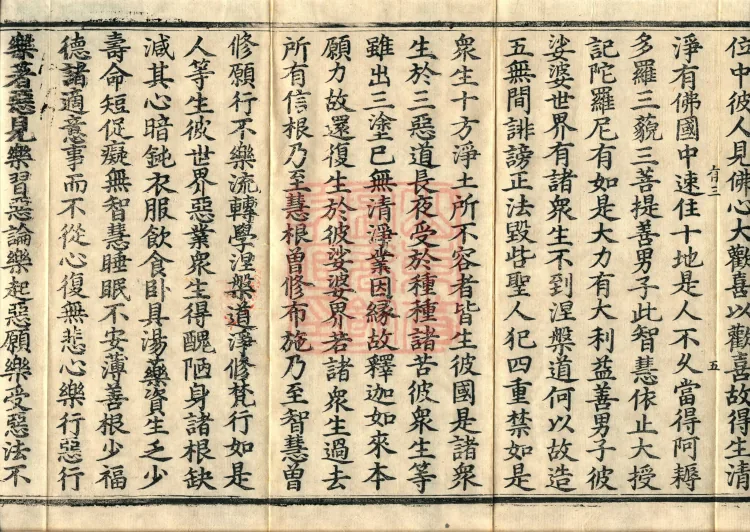 位中彼人見佛心大歡喜以歡喜故得生清
淨有佛國中速住十地是人不久當得阿耨
多羅三藐三菩提善男子此智慧依止大授
記陀羅尼有如是大力有大利益善男子彼
娑婆世界有諸衆生不到涅槃道何以故造
五無間誹謗正法毀呰聖人犯四重禁如是
衆生十方淨土所不容者皆生彼國是諸衆
生於三惡道長夜受於種種諸苦彼衆生等
雖出三塗已無清淨業因緣故釋迦如來本
願力故還復生於彼娑婆界若諸衆生過去
所有信根乃至慧根曾修布施乃至智慧曾
修願行不樂流轉學涅槃道淨修梵行如是
人等生彼世界惡業衆生得醜陋身諸根缺
減其心暗鈍衣服飲食卧具湯藥資生乏少
壽命短促癡無智慧睡眠不安薄善根少福
德諸適意事而不從心復無悲心樂行惡行
樂著惡見樂習惡論樂起惡願樂受惡法不
三
五